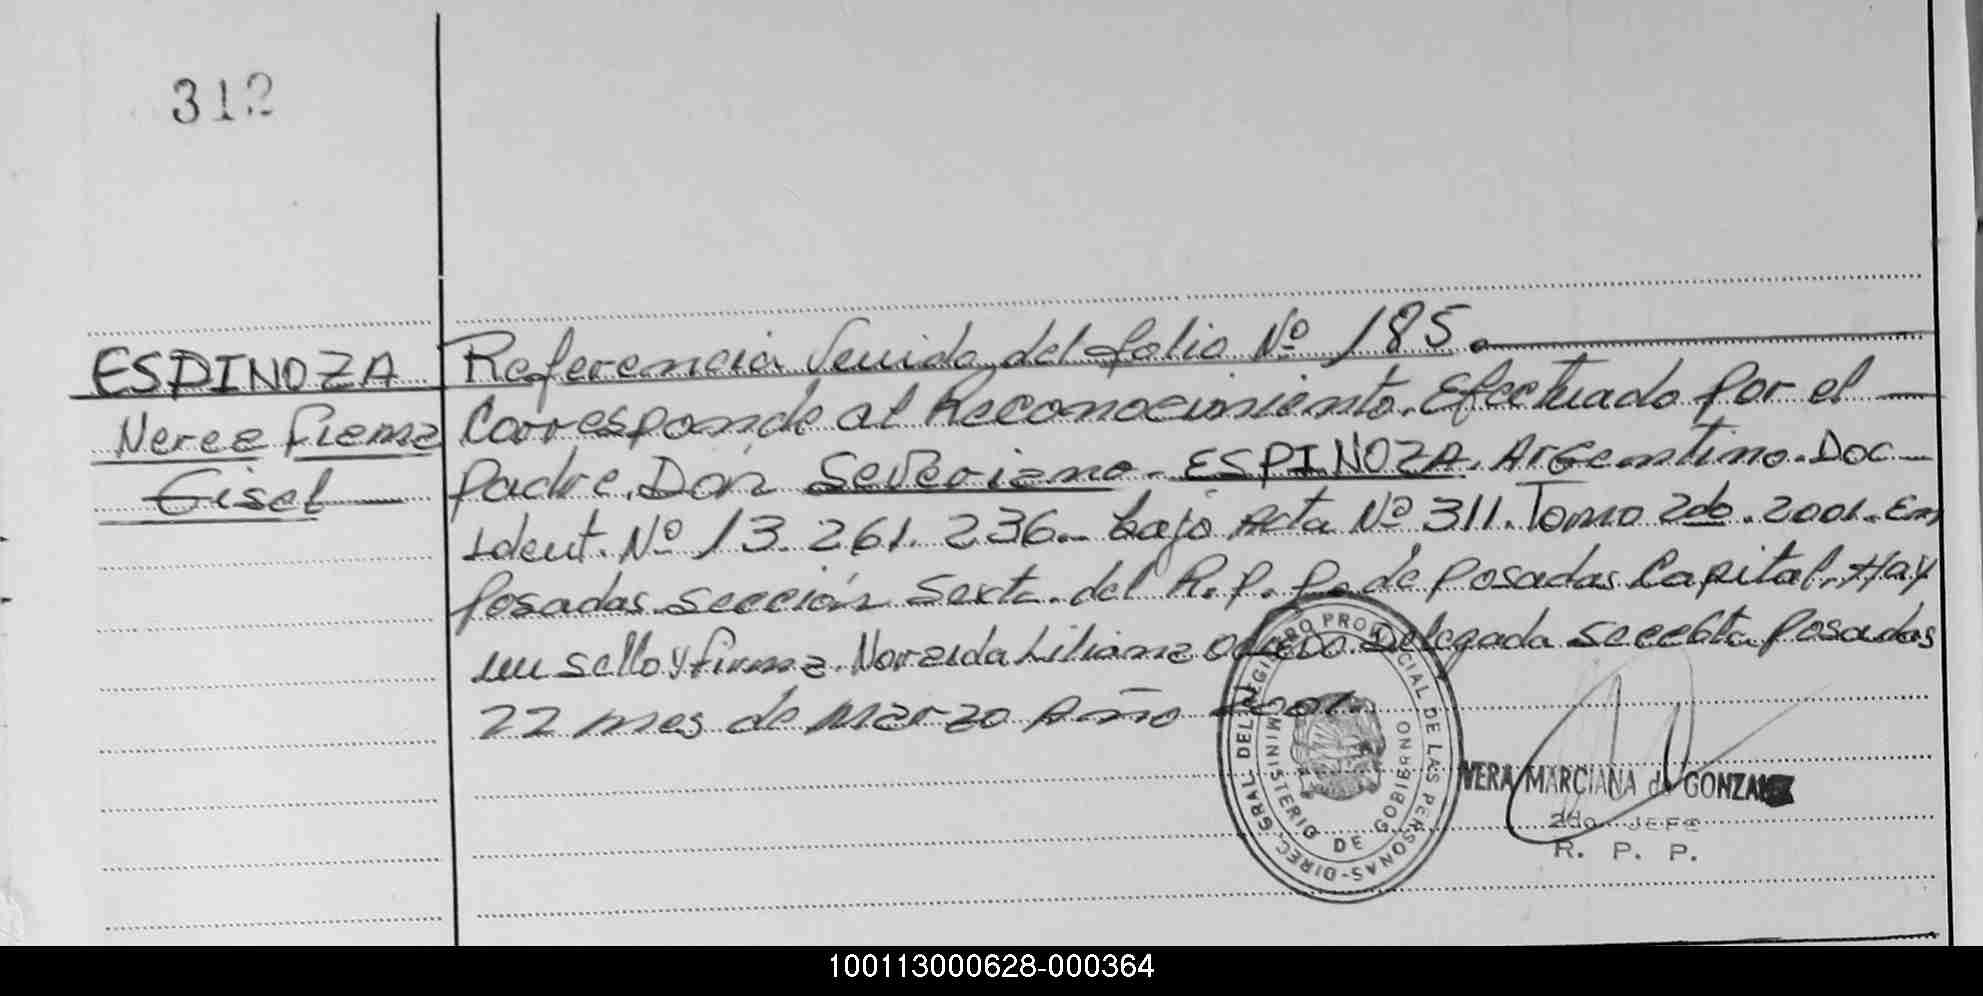 312
ESPINOZA
Nerea
Gisel
Referencia Venida del folio Nº 185.
Corresponde al Reconocimiento. Efectuado Por el
padre. Don Severiano. ESPINOZA. Argentino. Doc
Ident. Nº 13.261.236. bajo Acta Nº 311. Tomo 2do. 2001. En
Posadas sección Sexta. del R. P. P. de Posadas Capital. Hay
un sello y firma. Liliana Delegada Posadas
22 mes de Marzo Año 2001.
DIREC. GRAL DEL REGISTRO PROVINCIAL DE LAS PERSONAS
MINISTERIO DE GOBIERNO
VERA MARCIANA de GONZALEZ
2do. JEFE
R. P. P.
100113000628-000364